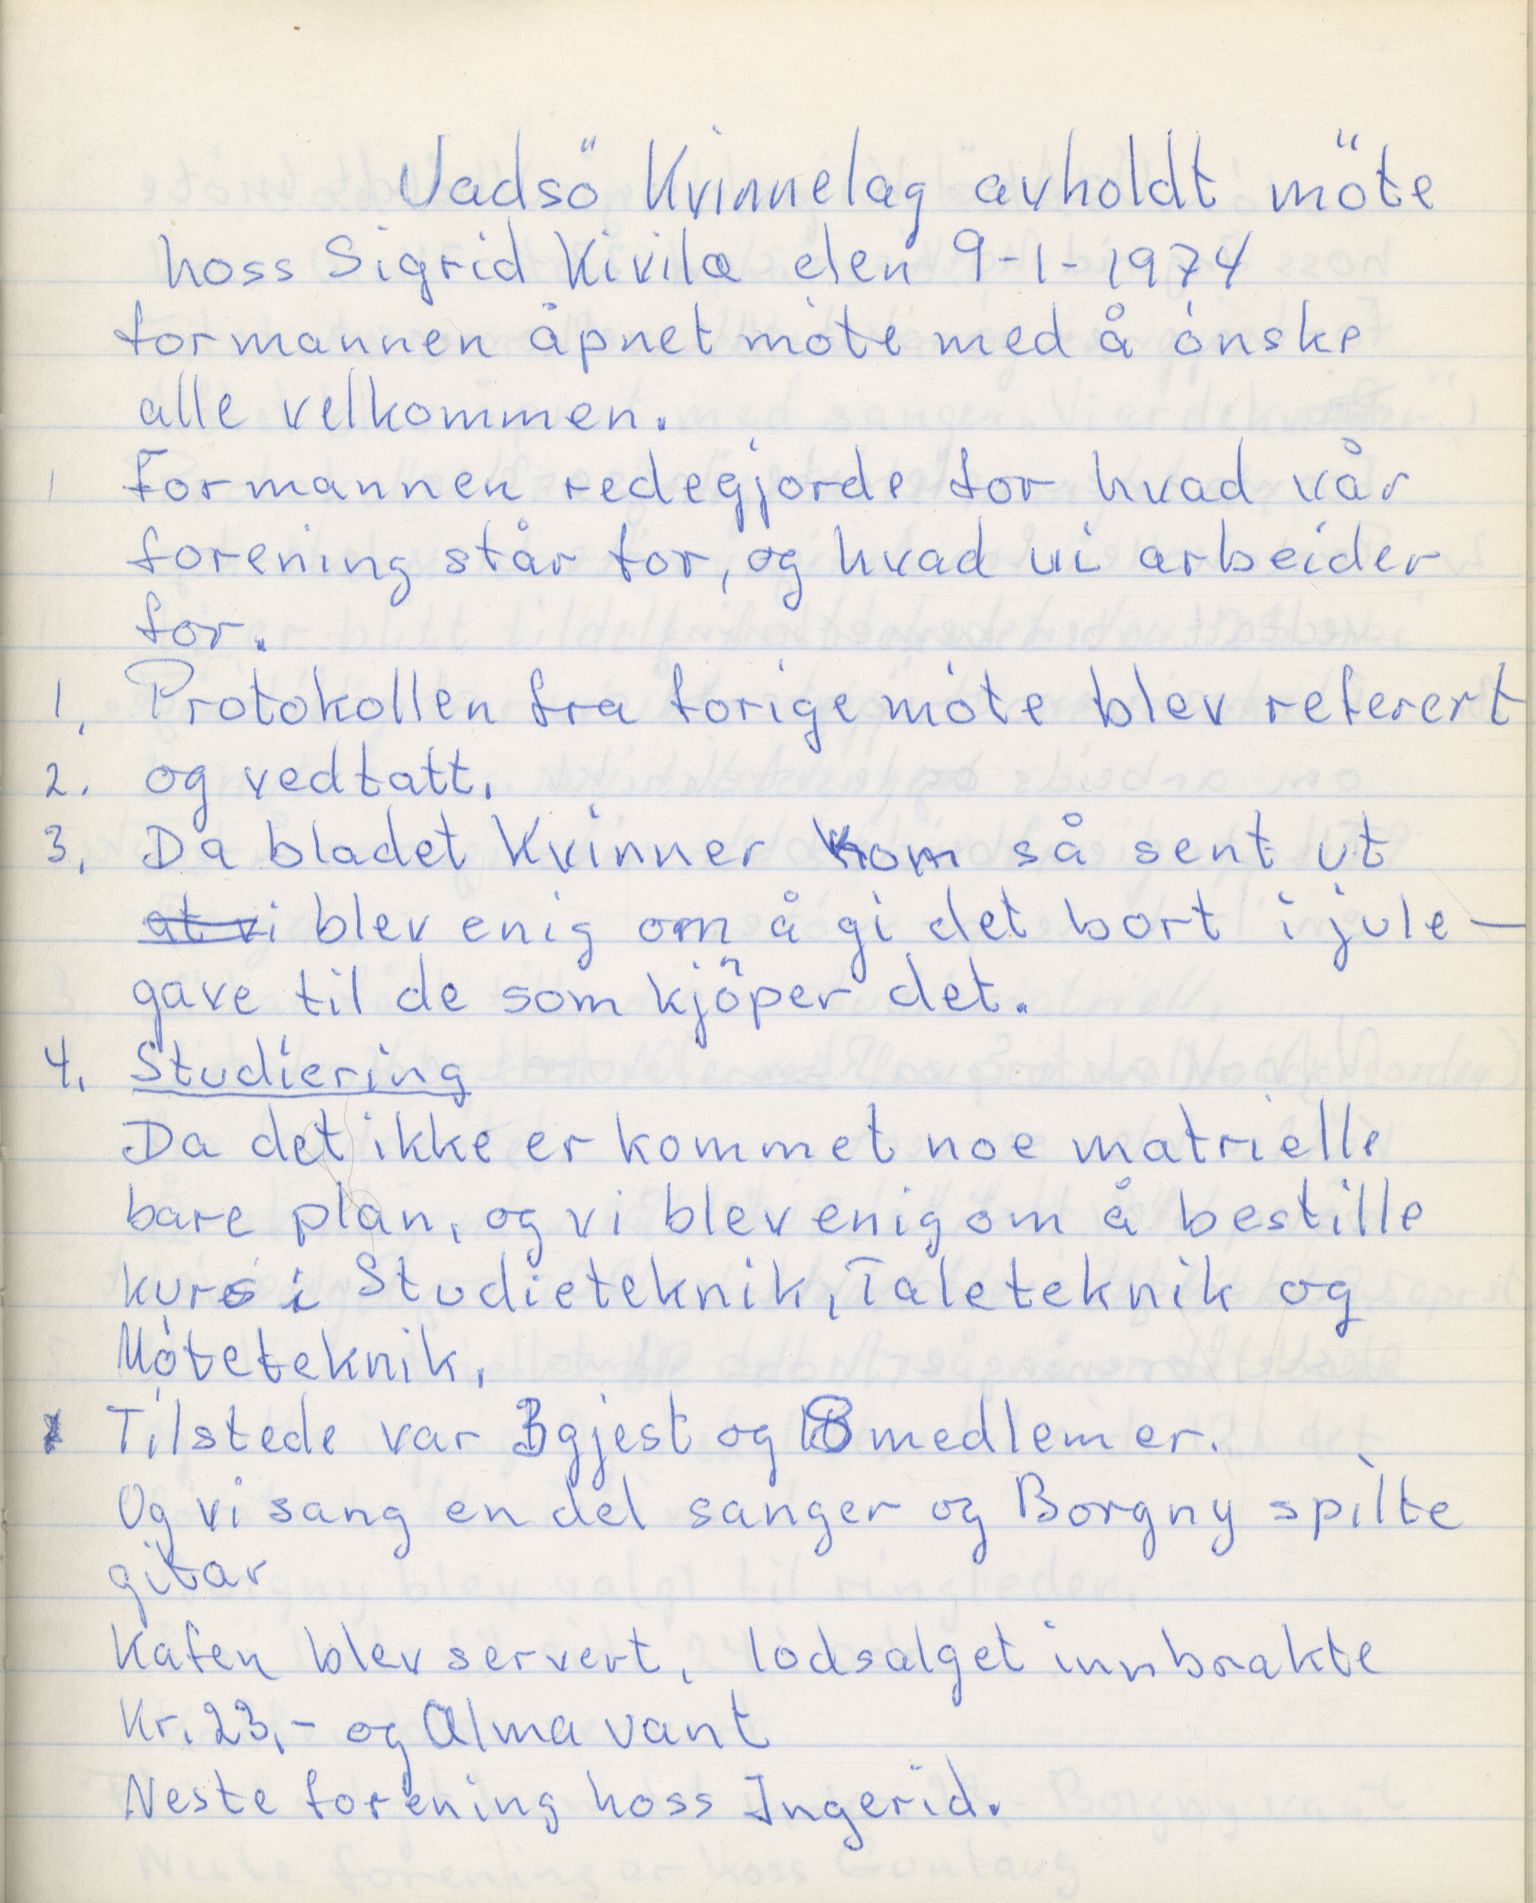 Vadsö Kvinnelag avholdt möte
hoss Sigrid Kivila den 9-1-1974
formannen åpnet möte med å ónske
alle velkommen.
1 Formannen redegjorde for hvad vår
forening står for, og hvad vi arbeider
for.
1. Protokollen fra forige móte blev referert
2. og vedtatt.
3. Da bladet Kvinner kom så sent ut
at vi blev enig om å gi det bort i jule-
gave til de som kjöper det.
4. Studiering
Da det ikke er kommet noe matrielle
bare plan, og vi blev enig om å bestille
kurs i Studieteknik, Taleteknik og
Móteteknik.
Tilstede var 3 gjest og 8 medlemer.
Og vi sang en del sanger og Borgny spilte
gitar
Kafen blev servert, lodsalget innbrakte
Kr. 23,- og Alma vant
Neste forening hoss Ingerid.